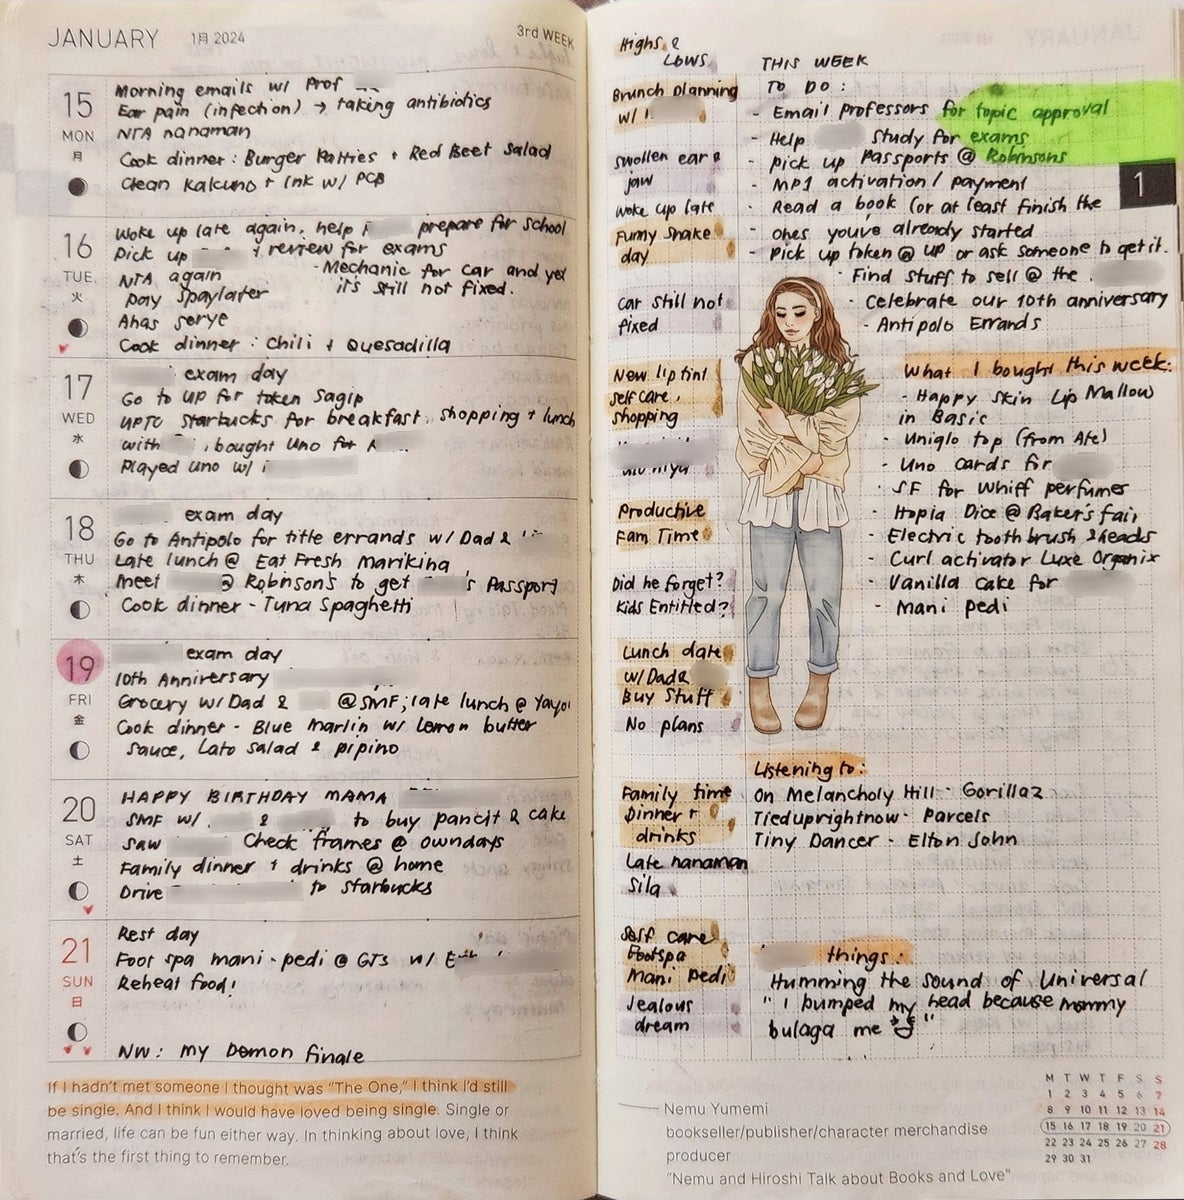 JANUARY 1月 2024 3rd WEEK
15
MON
月
Morning emails w/ Prof
Ear pain (infection) → taking antibiotics
NTA nanaman
Cook dinner : Burger Patties + Red Beet Salad
Clean Kakuno + Ink w/ PCB
16
TUE
火
Woke up late again, help prepare for school
Pick up + review for exams
NTA again - Mechanic for car and yet
Pay Spaylater it's still not fixed.
Ahas serye
Cook dinner : Chili + Quesadilla
17
WED
水
exam day
Go to UP for token Sagip
UPTC Starbucks for breakfast, shopping + lunch
with , bought Uno for
Played Uno w/
18
THU
木
exam day
Go to Antipolo for title errands w/ Dad &
Late lunch @ Eat Fresh Marikina
Meet @ Robinson's to get 's Passport
Cook dinner - Tuna Spaghetti
19
FRI
金
exam day
10th Anniversary
Grocery w/ Dad & @ SMF; late lunch @ Yayoi
Cook dinner - Blue Marlin w/ Lemon butter
sauce, Lato salad & pipino
20
SAT
土
HAPPY BIRTHDAY MAMA
SMF w/ & to buy pancit & cake
Saw Check frames @ owndays
Family dinner + drinks @ home
Drive to Starbucks
21
SUN
日
Rest day
Foot spa mani - pedi @ GTs w/
Reheat food!
NW : My Demon finale
If I hadn't met someone I thought was "The One," I think I'd still
be single. And I think I would have loved being single. Single or
married, life can be fun either way. In thinking about love, I think
that's the first thing to remember.
Highs &
Lows
Brunch planning
w/
swollen ear &
jaw
Woke up late
Funny snake
day
Car still not
fixed
New lip tint
self care,
shopping
Productive
Fam Time
Did he forget?
Kids Entitled?
Lunch date
w/ Dad &
Buy Stuff
No plans
Family time
Dinner +
drinks
Late nanaman
sila
Self care
Footspa
Mani pedi
Jealous
dream
THIS WEEK
TO DO :
- Email professors for topic approval
- Help Study for exams
- Pick up Passports @ Robinsons
- MP1 activation / payment
- Read a book (or at least finish the
- ones you've already started
- Pick up token @ UP or ask someone to get it.
- Find stuff to sell @ the
- Celebrate our 10th anniversary
- Antipolo Errands
1
What I bought this week:
- Happy Skin Lip Mallow
in Basic
- Uniqlo top (from Ate)
- Uno cards for
- SF for Whiff perfumes
- Hopia Dice @ Baker's Fair
- Electric toothbrush & heads
- Curl activator Luxe Organix
- Vanilla cake for
- Mani pedi
Listening to:
On Melancholy Hill - Gorillaz
Tieduprightnow - Parcels
Tiny Dancer - Elton John
things :
Humming the sound of Universal
" I bumped my head because mommy
bulaga me "
Nemu Yumemi
bookseller/publisher/character merchandise
producer
"Nemu and Hiroshi Talk about Books and Love"
M T W T F S S
1 2 3 4 5 6 7
8 9 10 11 12 13 14
15 16 17 18 19 20 21
22 23 24 25 26 27 28
29 30 31